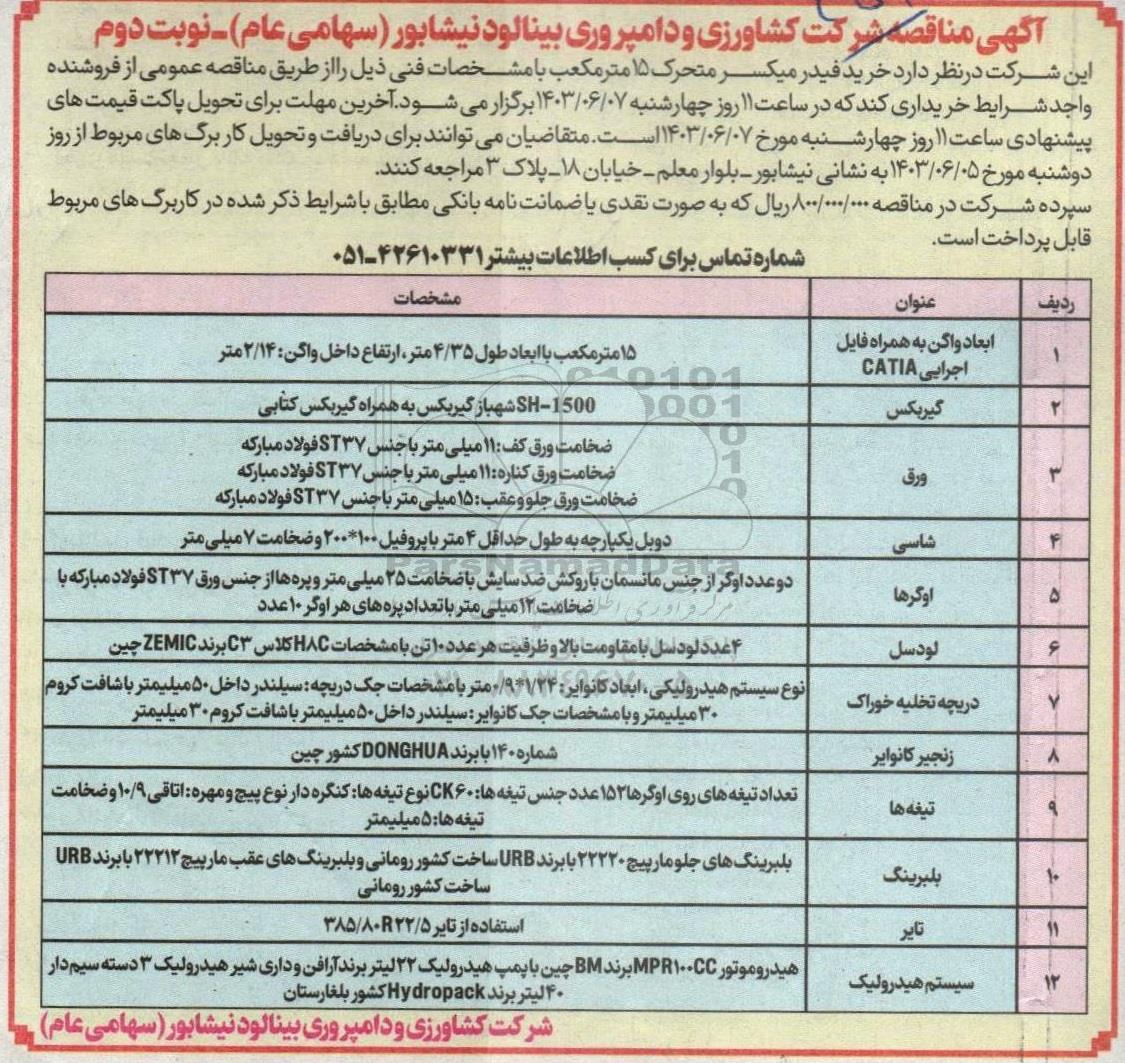 آگهی مناقصه شرکت کشاورزی و دامپروری بینالود نیشابور (سهامی عام) ـ نوبت دوم
این شرکت درنظر دارد خرید فیدر میکسر متحرک ۱۵ مترمکعب با مشخصات فنی ذیل را از طریق مناقصه عمومی از فروشنده
واجد شرایط خریداری کند که در ساعت ۱۱ روز چهارشنبه ۱۴۰۳/۰۶/۰۷ برگزار می شود. آخرین مهلت برای تحویل پاکت قیمت های
پیشنهادی ساعت ۱۱ روز چهارشنبه مورخ ۱۴۰۳/۰۶/۰۷ است. متقاضیان می توانند برای دریافت و تحویل کاربرگ های مربوط از روز
دوشنبه مورخ ۱۴۰۳/۰۶/۰۵ به نشانی نیشابور ـ بلوار معلم ـ خیابان ۱۸ ـ پلاک ۳ مراجعه کنند.
سپرده شرکت در مناقصه ۸۰۰/۰۰۰/۰۰۰ ریال که به صورت نقدی یا ضمانت نامه بانکی مطابق با شرایط ذکر شده در کاربرگ های مربوط
قابل پرداخت است.
شماره تماس برای کسب اطلاعات بیشتر ۴۲۶۱۰۳۳۱-۰۵۱
ردیف عنوان مشخصات
۱ ابعاد واگن به همراه فایل اجرایی CATIA ۱۵ مترمکعب با ابعاد طول ۴/۳۵ متر، ارتفاع داخل واگن: ۲/۱۴ متر
۲ گیربکس SH-1500 شهباز گیربکس به همراه گیربکس کتابی
۳ ورق ضخامت ورق کف: ۱۱ میلی متر با جنس ST۳۷ فولاد مبارکه
ضخامت ورق کناره: ۱۱ میلی متر با جنس ST۳۷ فولاد مبارکه
ضخامت ورق جلو و عقب: ۱۵ میلی متر با جنس ST۳۷ فولاد مبارکه
۴ شاسی دوبل یکپارچه به طول حداقل ۴ متر با پروفیل ۱۰۰*۲۰۰ و ضخامت ۷ میلی متر
۵ اوگرها دو عدد اوگر از جنس مانسمان با روکش ضد سایش با ضخامت ۲۵ میلی متر و پره ها از جنس ورق ST۳۷ فولاد مبارکه با
ضخامت ۱۲ میلی متر با تعداد پره های هر اوگر ۱۰ عدد
۶ لودسل ۴ عدد لودسل با مقاومت بالا و ظرفیت هر عدد ۱۰ تن با مشخصات H۸C کلاس C۳ برند ZEMIC چین
۷ دریچه تخلیه خوراک نوع سیستم هیدرولیکی، ابعاد کانوایر: ۱/۲۴*۰/۹ متر با مشخصات جک دریچه: سیلندر داخل ۵۰ میلیمتر با شافت کروم
۳۰ میلیمتر و با مشخصات جک کانوایر: سیلندر داخل ۵۰ میلیمتر با شافت کروم ۳۰ میلیمتر
۸ زنجیر کانوایر شماره ۱۴۰ با برند DONGHUA کشور چین
۹ تیغه ها تعداد تیغه های روی اوگرها ۱۵۲ عدد جنس تیغه ها: CK۶۰ نوع تیغه ها: کنگره دار نوع پیچ و مهره: اتاقی ۱۰/۹ و ضخامت
تیغه ها: ۵ میلیمتر
۱۰ بلبرینگ بلبرینگ های جلو مارپیچ ۲۲۲۲۰ با برند URB ساخت کشور رومانی و بلبرینگ های عقب مارپیچ ۲۲۲۱۲ با برند URB
ساخت کشور رومانی
۱۱ تایر استفاده از تایر ۳۸۵/۸۰R۲۲/۵
۱۲ سیستم هیدرولیک هیدروموتور MPR۱۰۰CC برند BM چین با پمپ هیدرولیک ۲۲ لیتر برند آرافن و داری شیر هیدرولیک ۳ دسته سیم دار
۴۰ لیتر برند Hydropack کشور بلغارستان
شرکت کشاورزی و دامپروری بینالود نیشابور (سهامی عام)
ParsNamadData